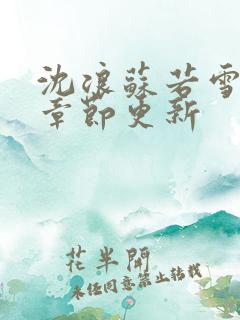 沈浪蘇若雪
章節更新
花半開
未经同意禁止转载